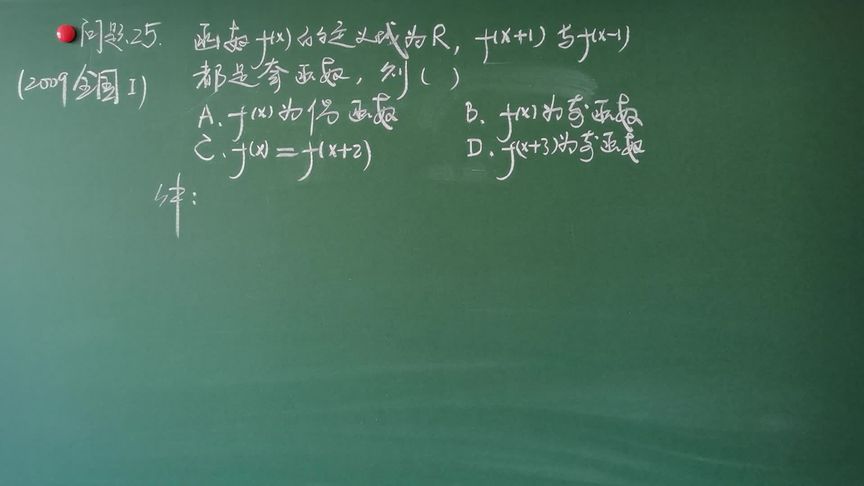 问题25. 函数f(x)的定义域为R, f(x+1)与f(x-1)
(2009全国I) 都是奇函数, 则( )
A. f(x)为偶函数 B. f(x)为奇函数
C. f(x)=f(x+2) D. f(x+3)为奇函数
解: